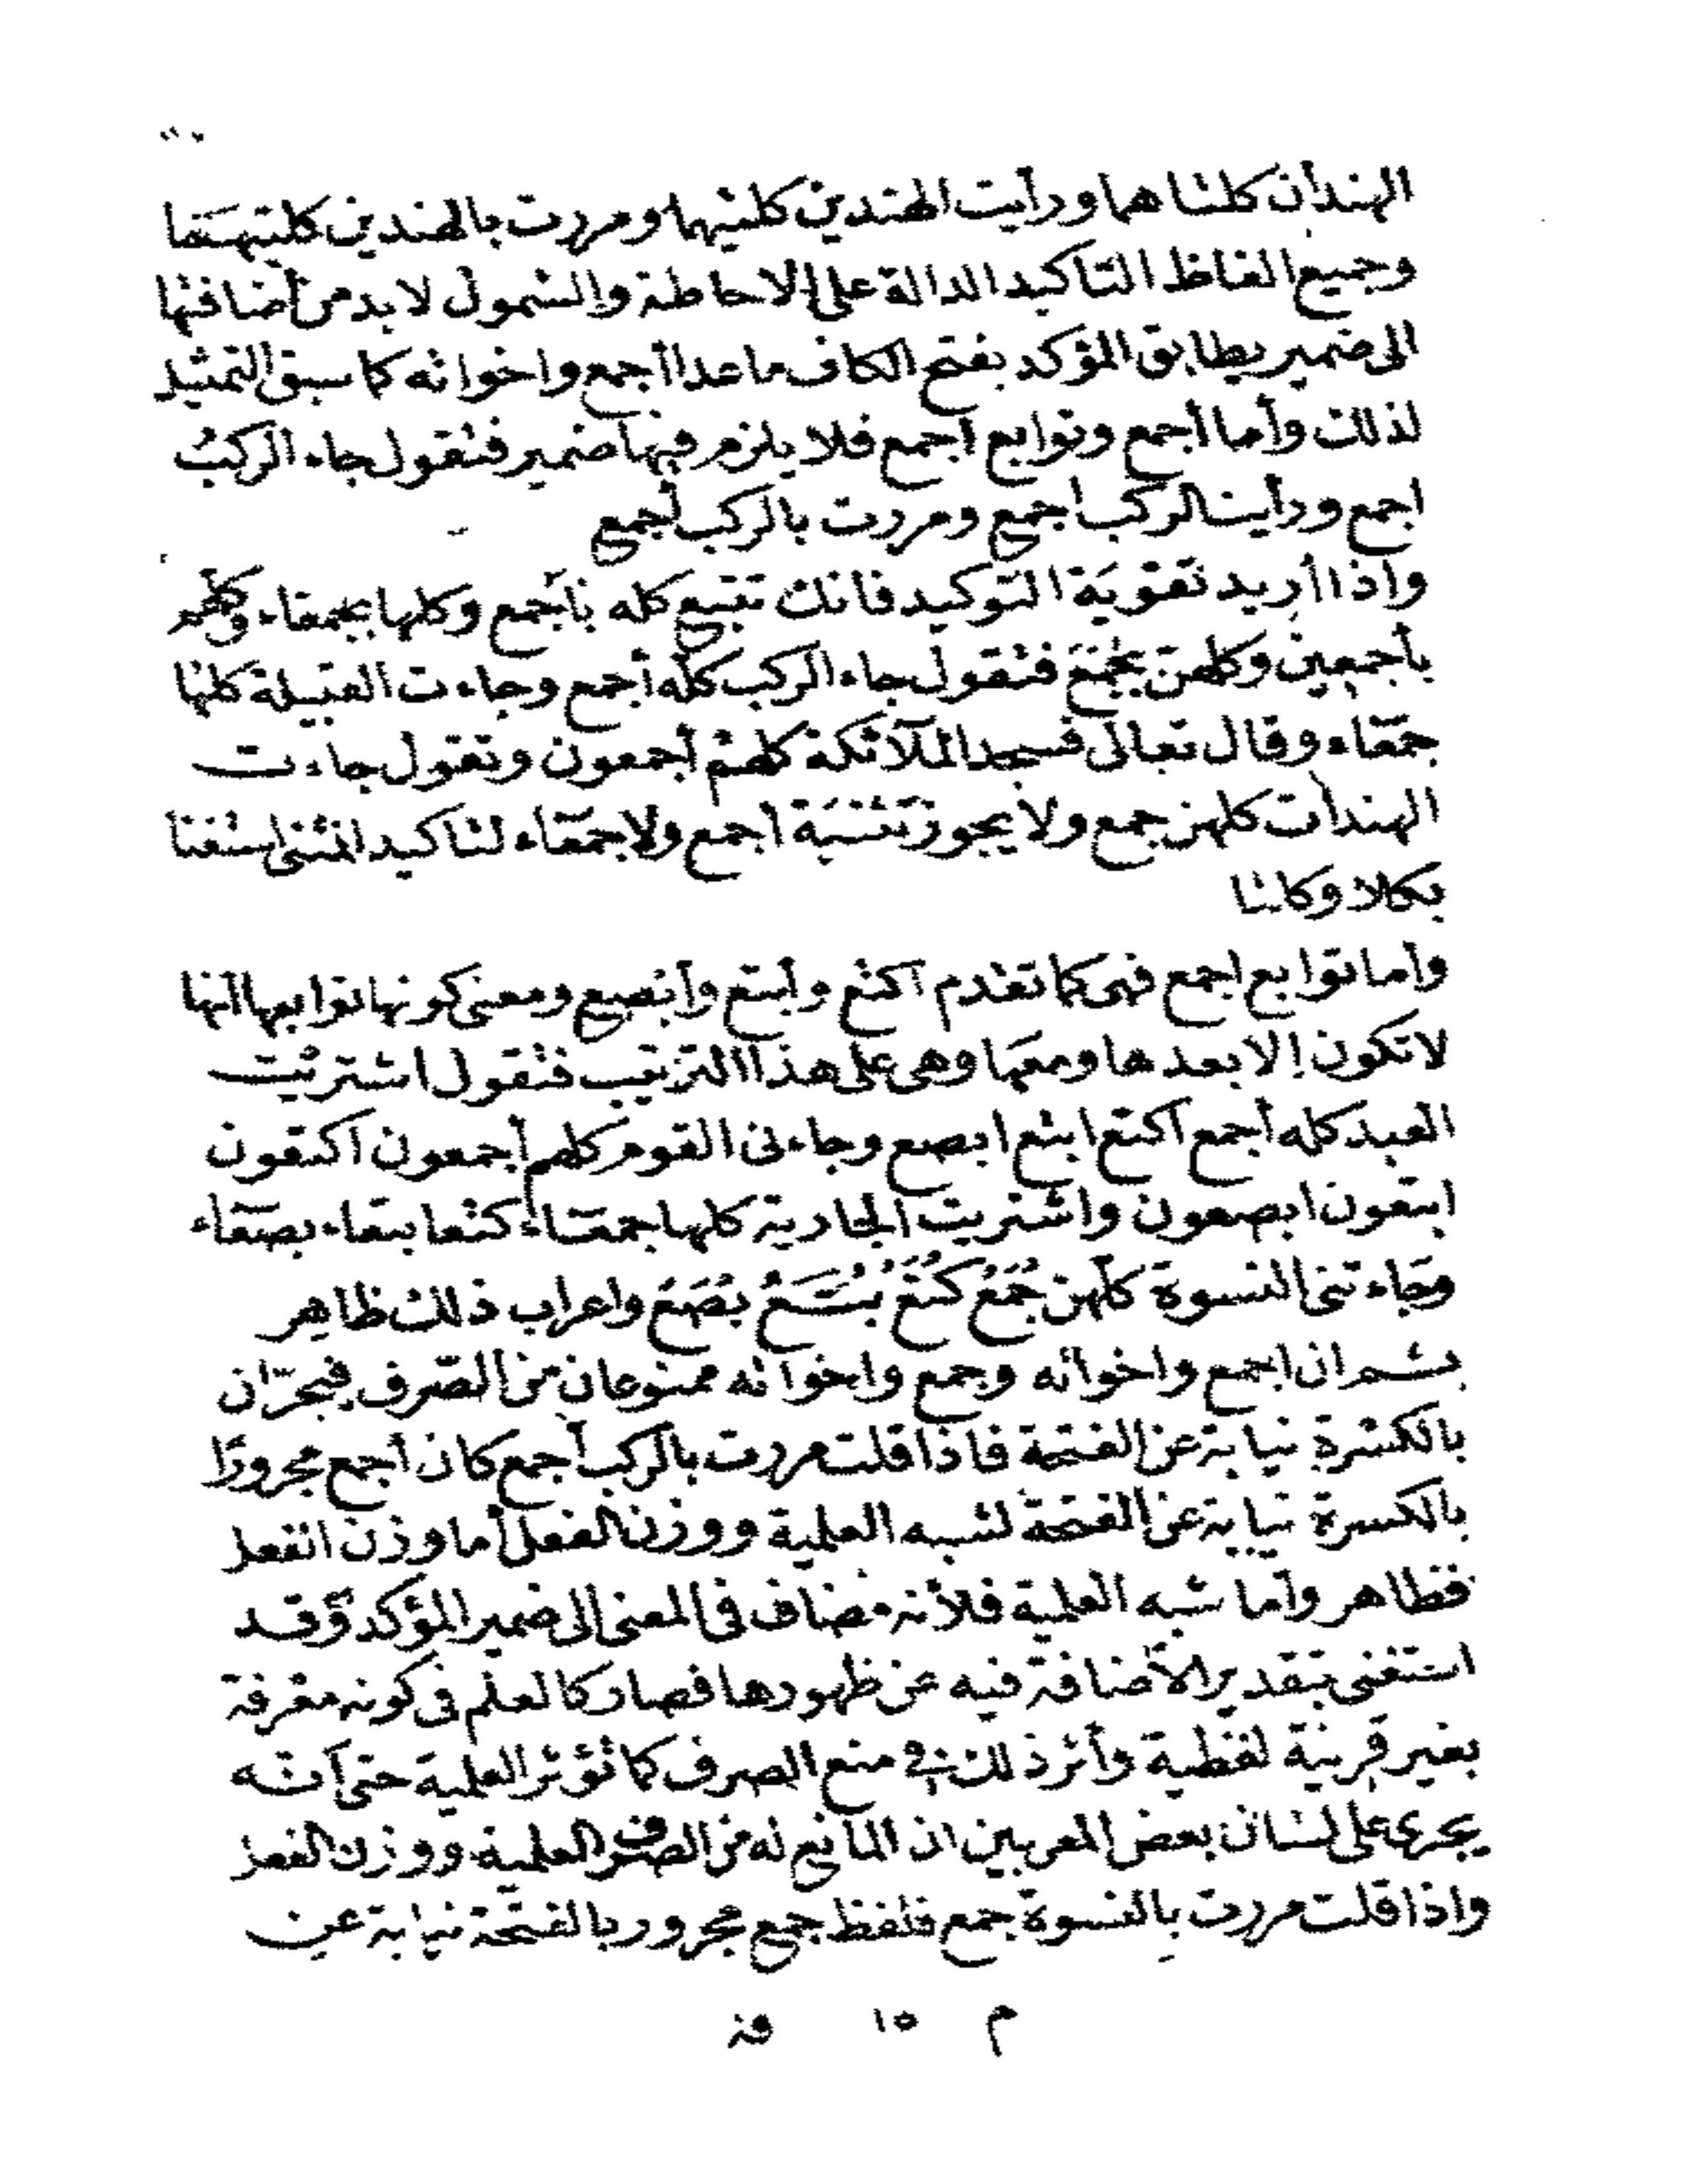 الهندان كلتاهما ورأيت الهندين كلتيهما ومررت بالهندين كلتيهما
وجميع الفاظ التاكيد الدالة على الاحاطة والشمول لا بد من أضافتها
الى ضمير يطابق المؤكد بفتح الكاف ما عدا أجمع واخواته كما سبق التمثيل
لذلك وأما أجمع وتوابع أجمع فلا يلزم فيها ضمير فتقول جاء الركبُ
اجمع ورأيت الركب اجمع ومررت بالركب أجمع
واذا أريد تقوية التوكيد فانك تتبع كله بأجمع وكلها بجمعاء وكلهم
بأجمعين وكلهن بجُمَعَ فتقول جاء الركب كله أجمع وجاءت القبيلة كلها
جمعاء وقال تعالى فسجد الملآئكة كلهم أجمعون وتقول جاءت
الهندات كلهن جمع ولا يجوز تثنية أجمع ولا جمعاء لتاكيد المثنى استغنا
بكلا وكلتا
وأما توابع اجمع فهى كما تقدم اكتع وأبتع وأبصع ومعنى كونها توابعها انها
لا تكون إلا بعدها ومعها وهى على هذا الترتيب فتقول اشتريت
العبد كله أجمع اكتع ابتع ابصع وجاءنى القوم كلهم أجمعون اكتعون
ابتعون ابصعون واشتريت الجارية كلها جمعاء كتعا بتعاء بصعاء
وجاءتنى النسوة كلهن جُمَعُ كُتَعُ بُتَعُ بُصَعُ واعراب ذلك ظاهر
ثم ان اجمع واخواته وجمع واخواته ممنوعان من الصرف فيجرّان
بالكسرة نيابة عن الفتحة فاذا قلت مررت بالركب أجمع كان أجمع مجرورًا
بالكسرة نيابة عن الفتحة لشبه العلمية ووزن الفعل أما وزن الفعل
فظاهر وأما شبه العلمية فلأنه مضاف فى المعنى الى ضمير المؤكد وقد
استغنى بتقدير الأضافة فيه عن ظهورها فصار كالعلم فى كونه معرفة
بغير قرينة لفظية وأثر ذلك فى منع الصرف كما تؤثر العلمية حتى أنه
يجرى على لسان بعض المعربين ان المانع له من الصرف العلمية ووزن الفعل
واذا قلت مررت بالنسوة جمع فلفظ جمع مجرور بالفتحة نيابة عن
م ١٥ فـ